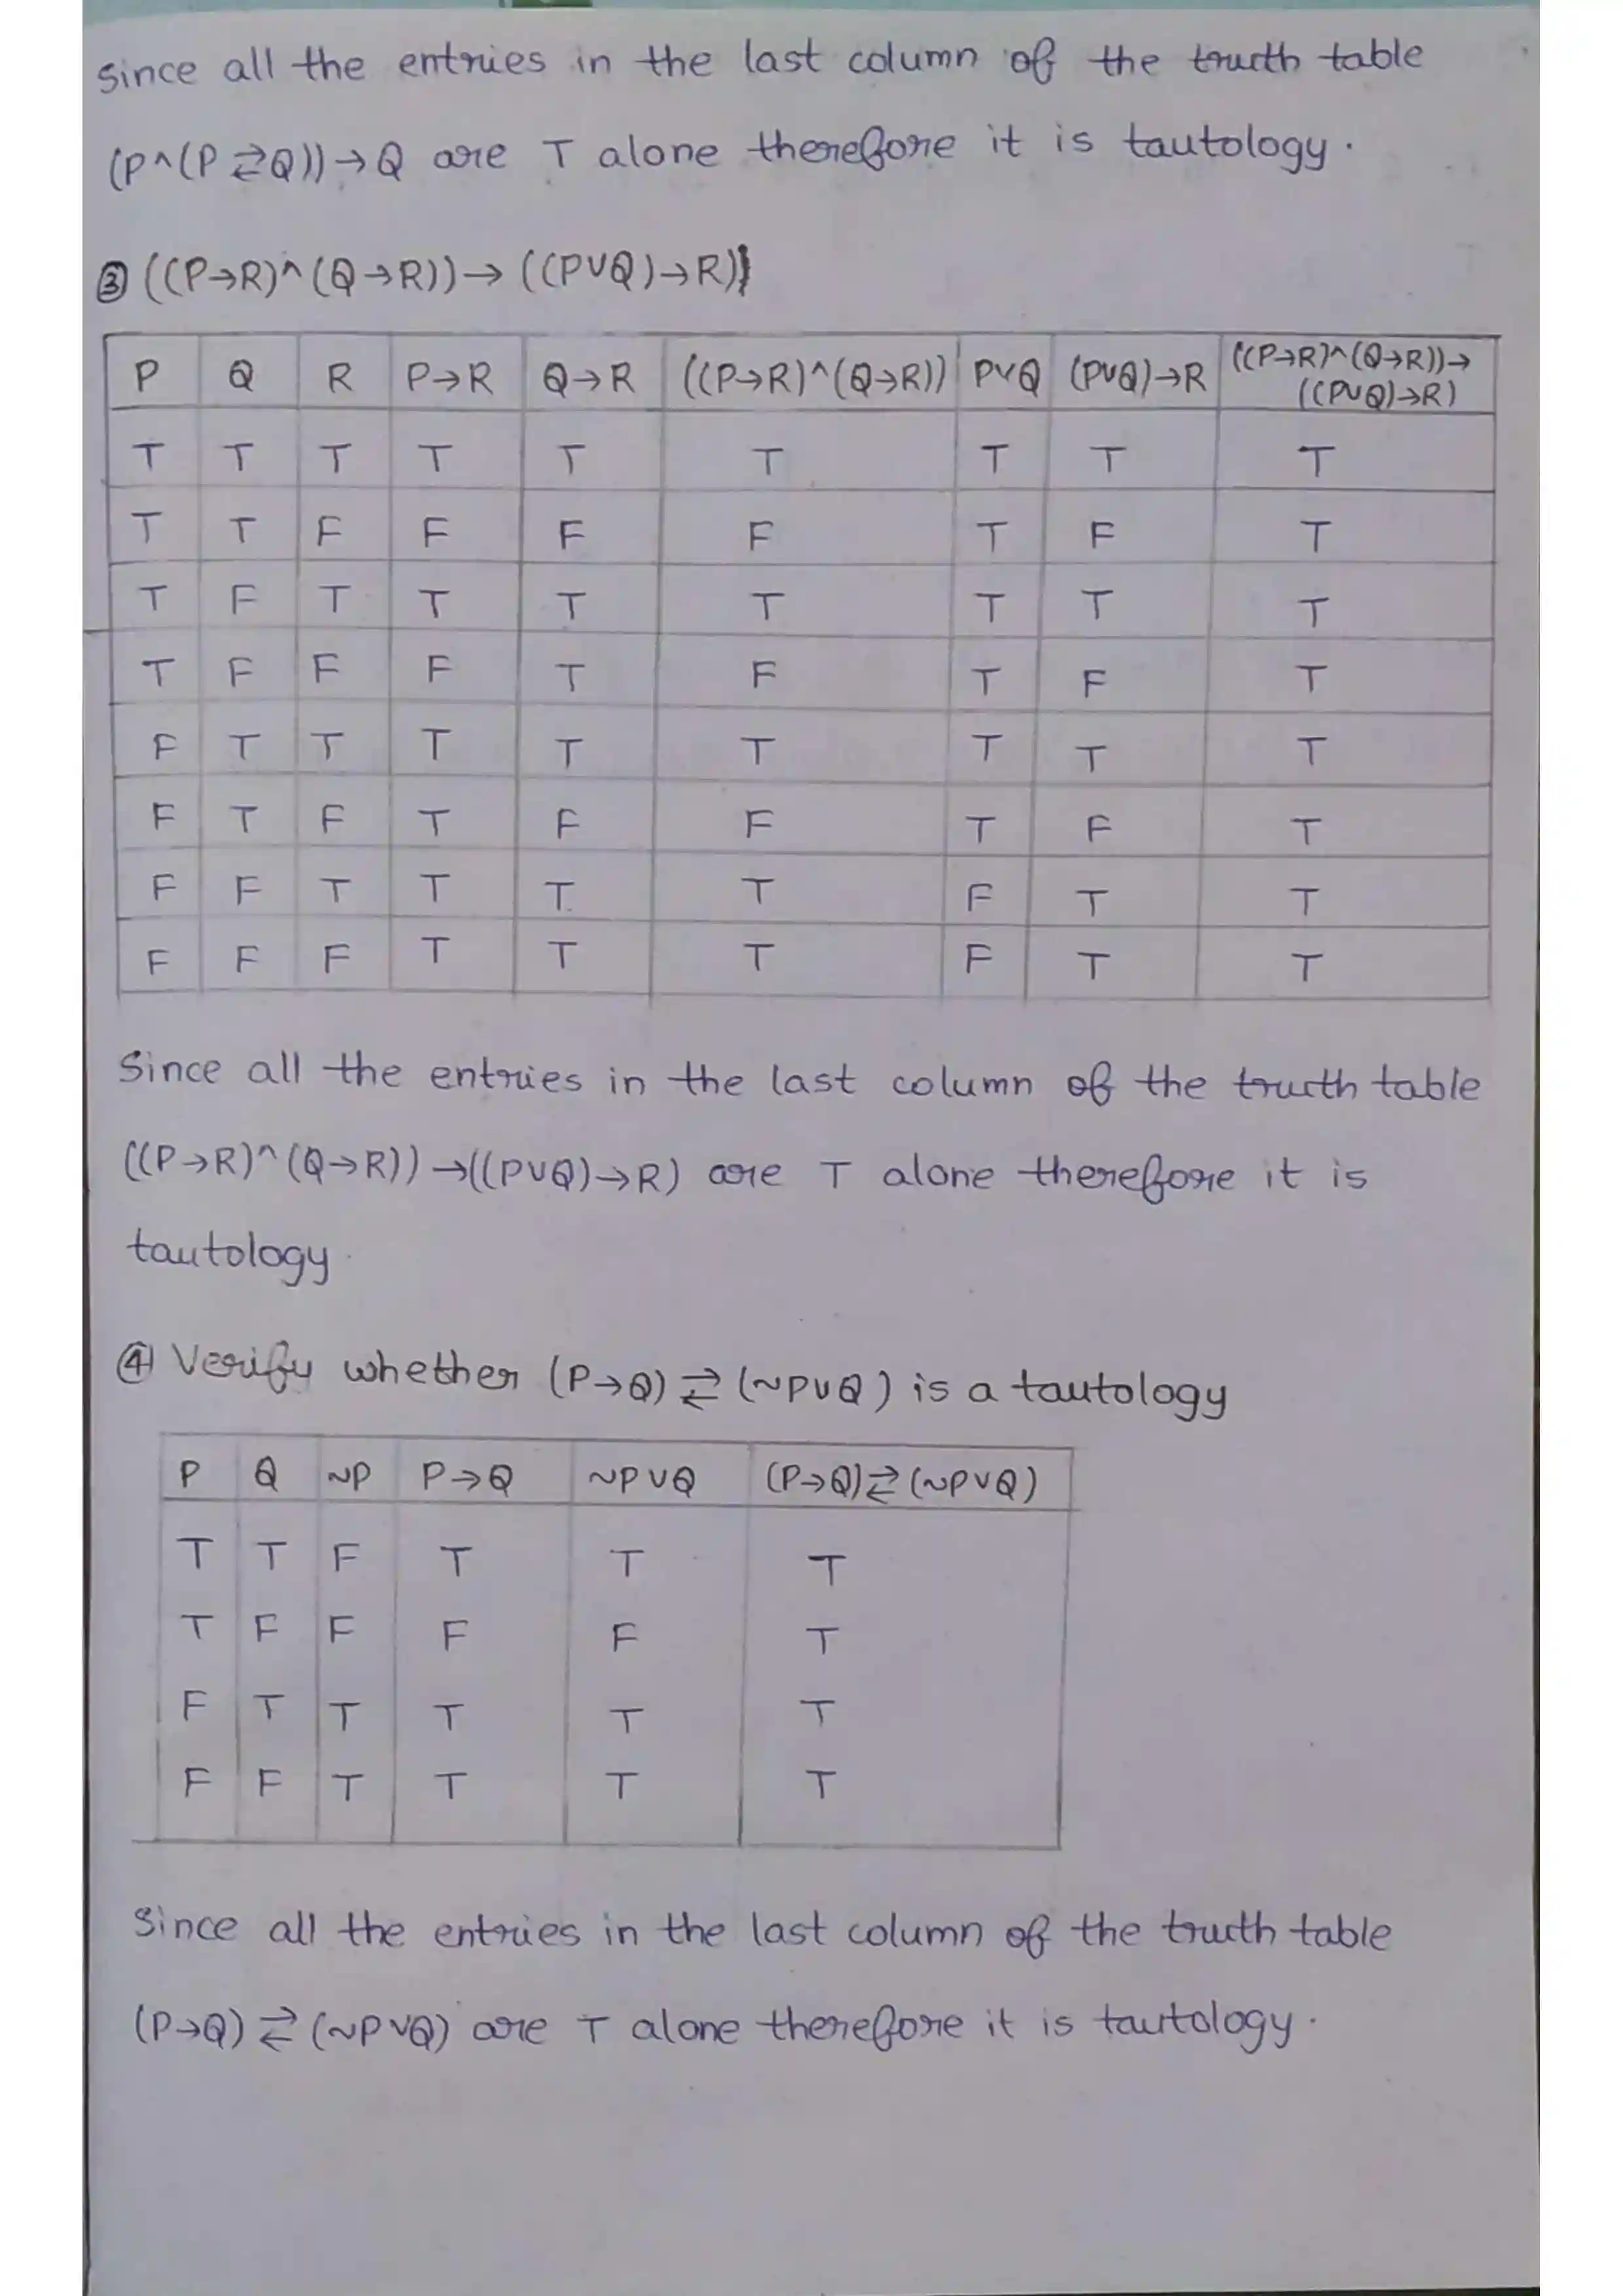 Since all the entries in the last column of the truth table
(P∧(P⇄Q))→Q are T alone therefore it is tautology.
③ ((P→R)∧(Q→R))→((P∨Q)→R))
P Q R P→R Q→R ((P→R)∧(Q→R)) P∨Q (P∨Q)→R ((P→R)∧(Q→R))→
((P∨Q)→R)
T T T T T T T T T
T T F F F F T F T
T F T T T T T T T
T F F F T F T F T
F T T T T T T T T
F T F T F F T F T
F F T T T T F T T
F F F T T T F T T
Since all the entries in the last column of the truth table
((P→R)∧(Q→R))→((P∨Q)→R) are T alone therefore it is
tautology.
④ Verify whether (P→Q)⇄(~P∨Q) is a tautology
P Q ~P P→Q ~P∨Q (P→Q)⇄(~P∨Q)
T T F T T T
T F F F F T
F T T T T T
F F T T T T
Since all the entries in the last column of the truth table
(P→Q)⇄(~P∨Q) are T alone therefore it is tautology.